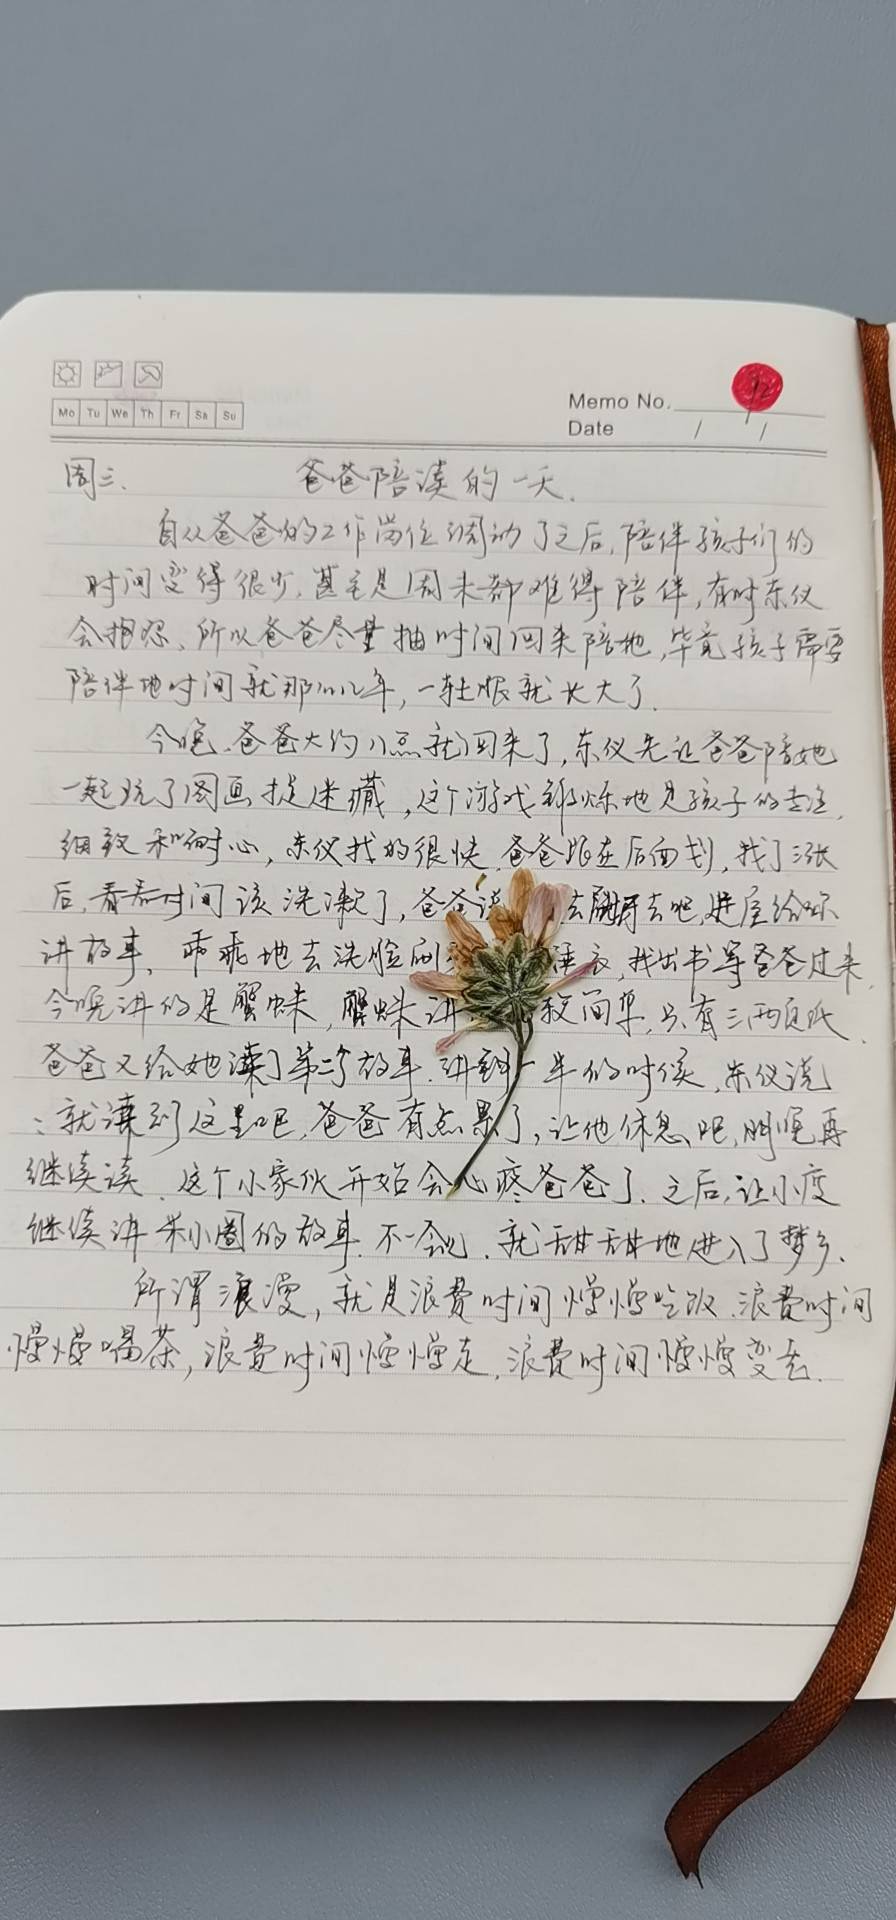 Mo Tu We Th Fr Sa Su
Memo No. 12
Date / /
周三. 爸爸陪读的一天.
自从爸爸的工作岗位调动了之后,陪伴孩子们的
时间变得很少,甚至是周末都难得陪伴,有时东仪
会抱怨、所以爸爸尽量抽时间回来陪她,毕竟孩子需要
陪伴地时间就那么几年,一转眼就长大了.
今晚,爸爸大约八点就回来了,东仪先让爸爸陪她
一起玩了图画捉迷藏,这个游戏锻炼地是孩子的专注,
细致和耐心,东仪找的很快,爸爸跟在后面划,找了三张
后,看看时间该洗漱了,爸爸说 去刷牙去吧,进屋给你
讲故事、乖乖地去洗脸刷 睡衣,找出书等爸爸过来,
今晚讲的是蟹蛛,蟹蛛讲 较简单,只有三两页纸,
爸爸又给她读了第二个故事,讲到一半的时候,东仪说
:就读到这里吧,爸爸有点累了,让他休息吧,明晚再
继续读.这个小家伙开始会心疼爸爸了.之后,让小度
继续讲米小圈的故事,不一会儿,就甜甜地进入了梦乡.
所谓浪漫,就是浪费时间慢慢吃饭,浪费时间
慢慢喝茶,浪费时间慢慢走,浪费时间慢慢变老.